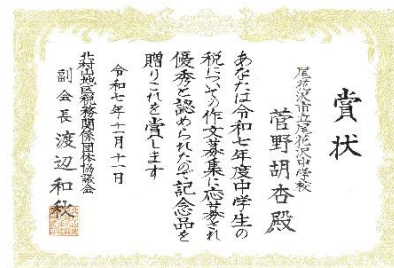 賞状
尾花沢市立尾花沢中学校
菅野胡杏殿
あなたは令和七年度中学生の
税についての作文募集に応募され
優秀と認められたので記念品を
贈りこれを賞します
令和七年十一月十一日
北村山地区税務関係団体協議会
副会長渡辺和秋